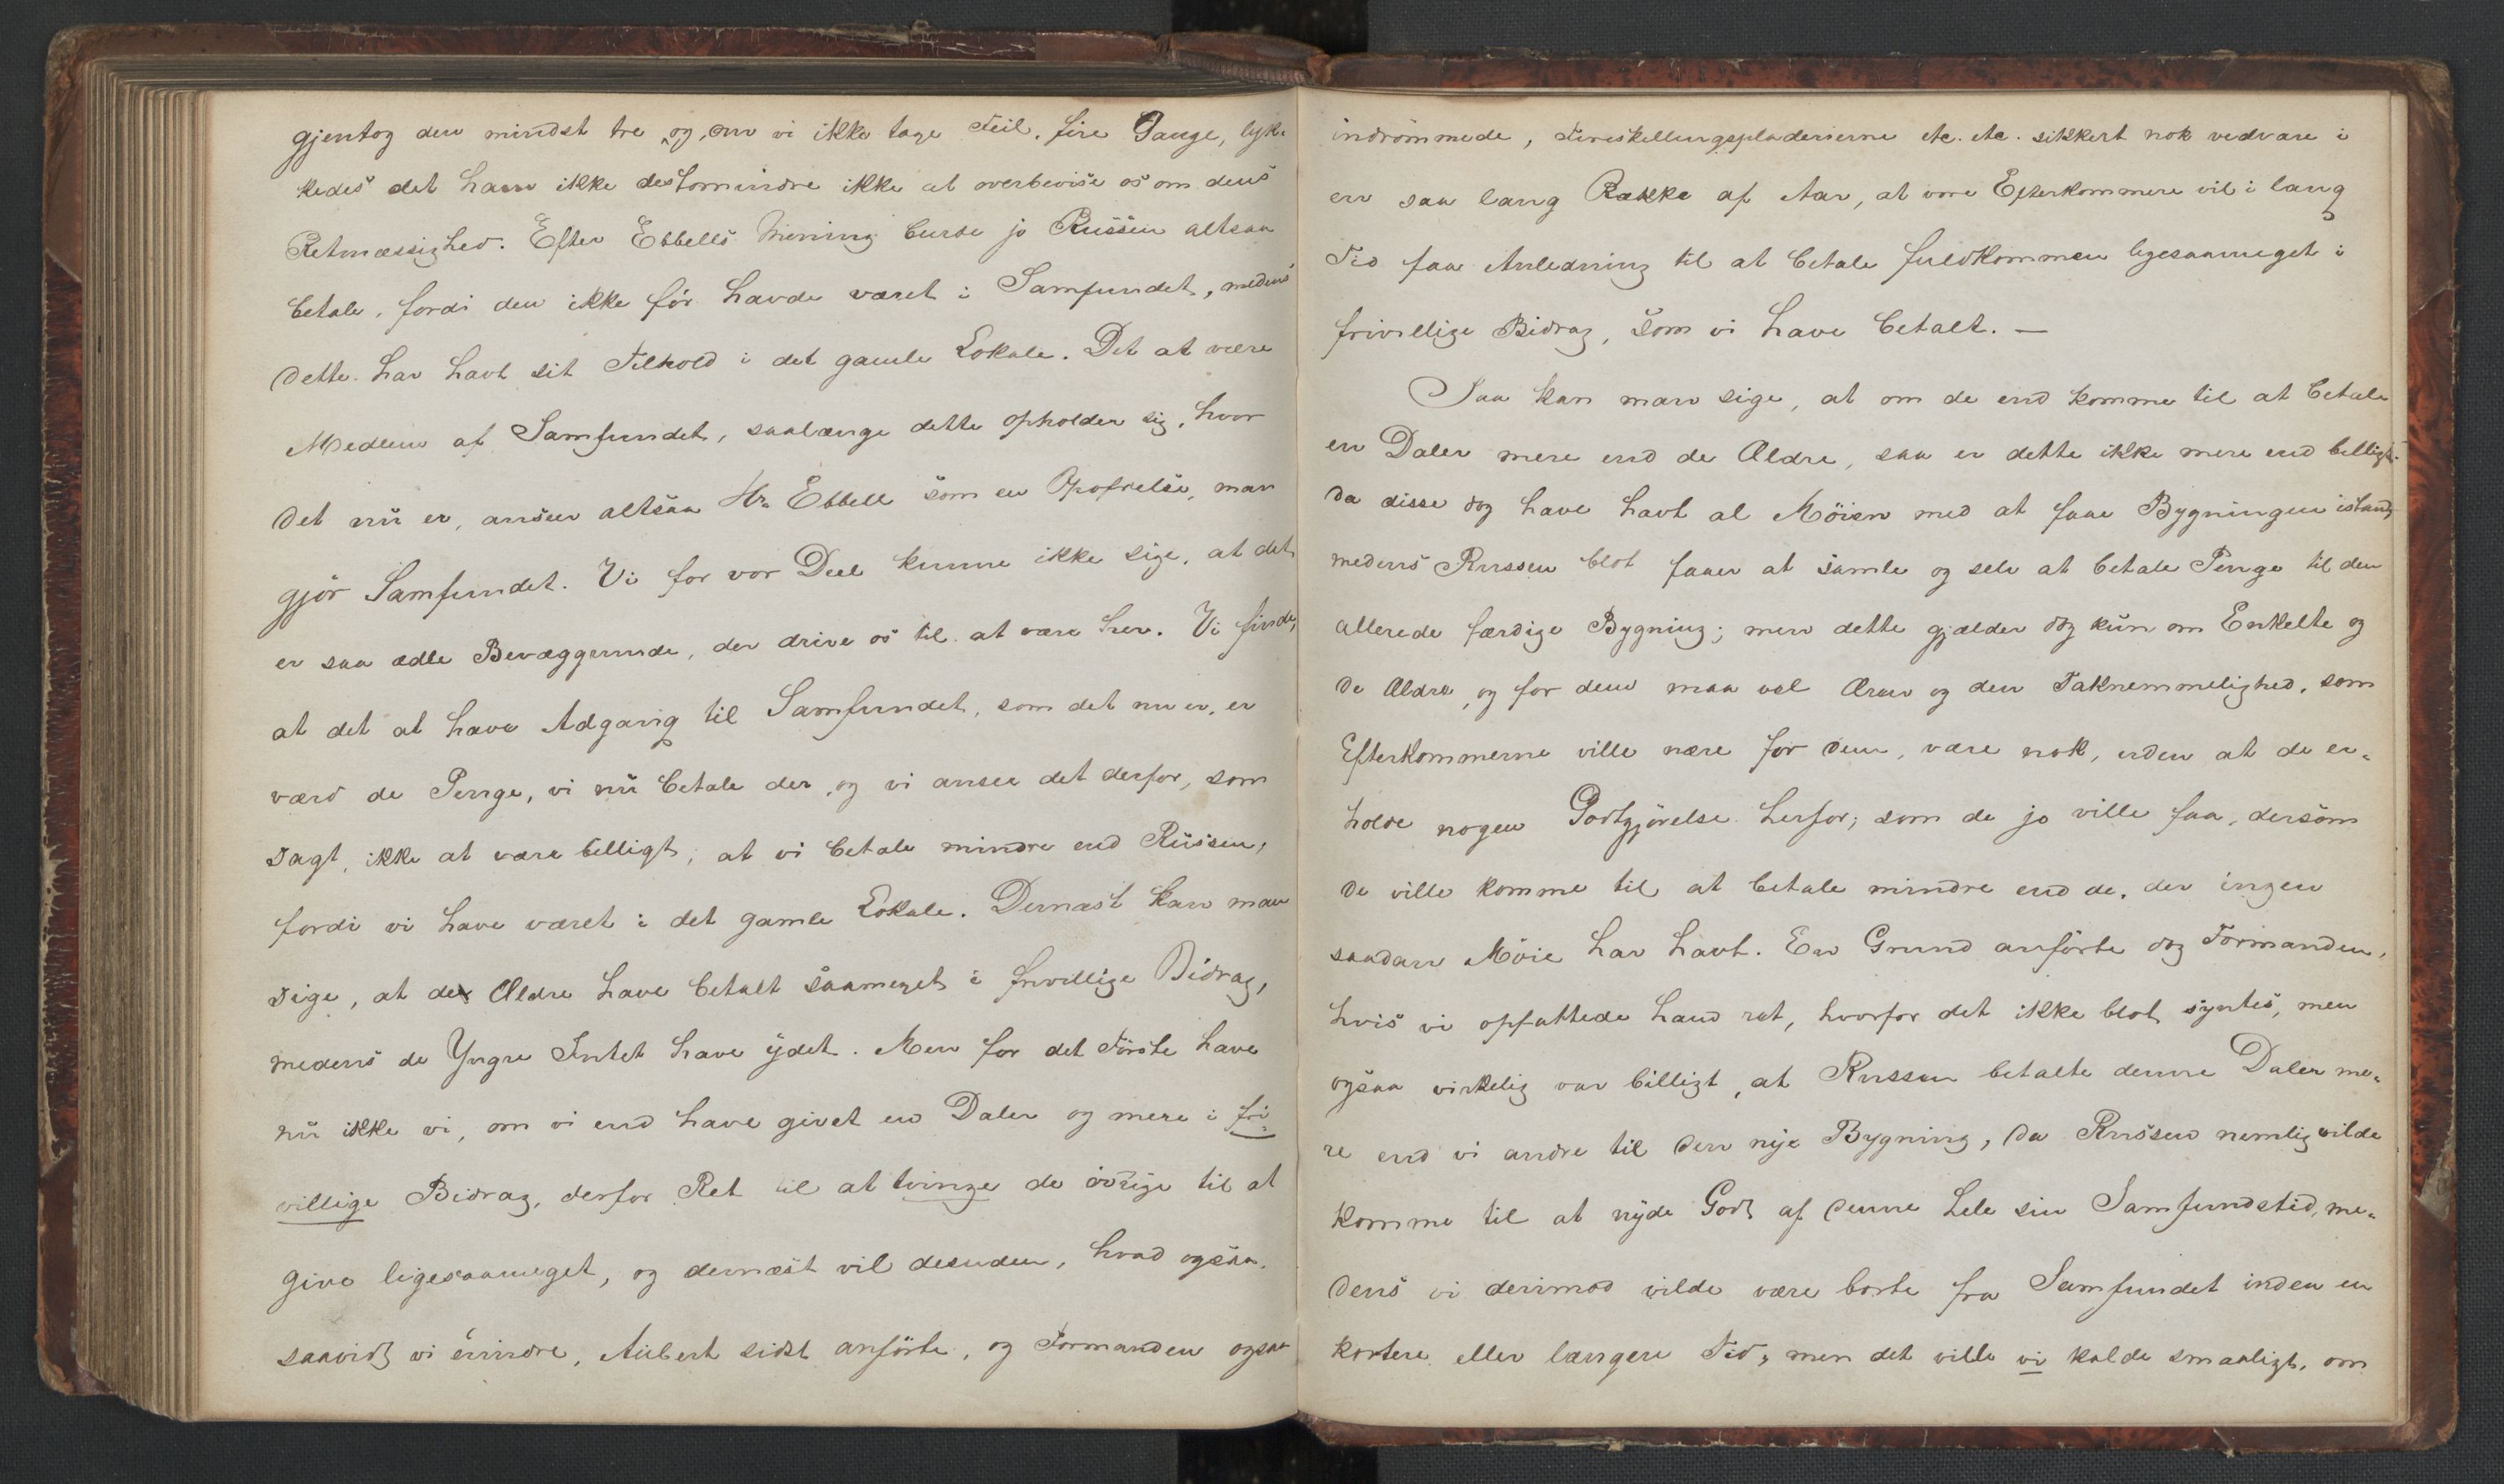 gjentog den mindst tre, og, om vi ikke tage Feil, fire Gange, lyk-
kedes det ham ikke destomindre ikke at overbevise os om dens
Retmæssighed. Efter Ebbells Mening burde jo Russen altsaa
betale, fordi den ikke før havde været i Samfundet, medens
dette har havt sit Tilhold i det gamle Lokale. Det at være
Medlem af Samfundet, saalænge dette opholder sig, hvor
det nu er, anseer altsaa Hr. Ebbell som en Opofrelse, man
gjør Samfundet. Vi for vor Deel kunne ikke sige, at det
er saa ædle Bevæggrunde, der drive os til at være her. Vi finde,
at det at have Adgang til Samfundet, som det nu er, er
værd de Penge, vi nu betale der, og vi ansee det derfor, som
sagt, ikke at være billigt, at vi betale mindre end Russen,
fordi vi have været i det gamle Lokale. Dernæst kan man
sige, at de Ældre have betalt saameget i frivillige Bidrag,
medens de Yngre Intet have ydet. Men for det Første have
nu ikke vi, om vi end have givet en Daler og mere i fri-
villige Bidrag, derfor Ret til at tvinge de øvrige til at
give ligesaameget, og dernæst vil desuden, hvad ogsaa,
saavidt vi erindre, Aubert sidst anførte, og Formanden ogsaa
indrømmede, Fireskillingspladerierne etc. etc. sikkert nok vedvare i
en saa lang Række af Aar, at vore Efterkommere vil i lang
Tid faa Anledning til at betale fuldkommen ligesaameget i
frivillige Bidrag, som vi have betalt. —
Saa kan man sige, at om de end komme til at betale
en Daler mere end de Ældre, saa er dette ikke mere end billigt,
da disse dog have havt al Møien med at faae Bygningen istand,
medens Russen blot faaer at samle og selv at betale Penge til den
allerede færdige Bygning; men dette gjælder dog kun om Enkelte og
de Ældre, og for dem maa vel Æren og den Taknemmelighed, som
Efterkommerne ville nære for dem, være nok, uden at de er-
holde nogen Godtgjørelse herfor; som de jo ville faa, dersom
de ville komme til at betale mindre end de, der ingen
saadan Møie har havt. En Grund anførte dog Formanden,
hvis vi opfattede ham ret, hvorfor det ikke blot syntes, men
ogsaa virkelig var billigt, at Russen betalte denne Daler me-
re end vi andre til den nye Bygning, da Russen nemlig vilde
komme til at nyde Godt af denne hele sin Samfundstid, me-
dens vi derimod vilde være borte fra Samfundet inden en
kortere eller længere Tid, men det ville vi kalde smaaligt, om